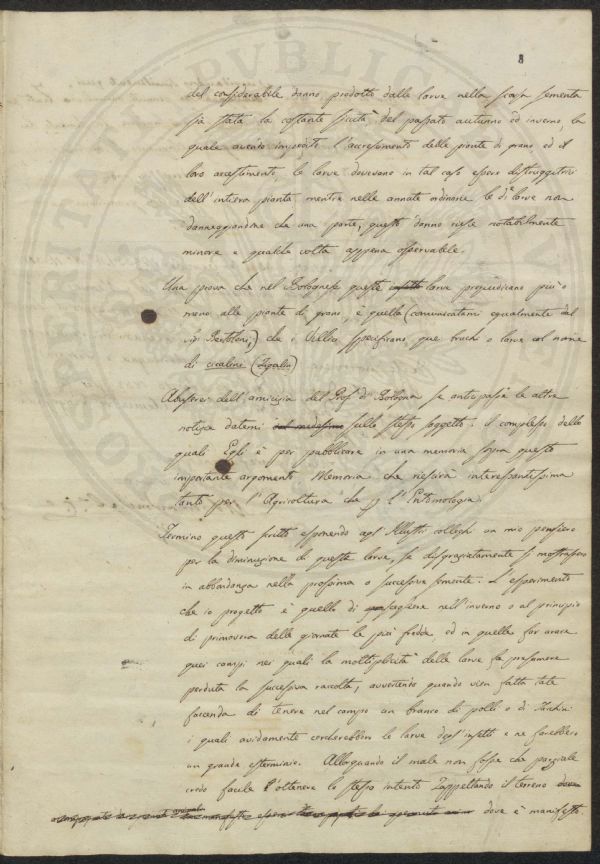 8
del considerabile danno prodotto dalle larve nella scorsa sementa
sia stata la costante siccità del passato autunno ed inverno, la
quale avendo impedito l'accrescimento delle piante di grano ed il
loro accestimento, le larve dovevano in tal caso essere distruggitrici
dell'intiera pianta mentre nelle annate ordinarie le de larve non
danneggiandone che una parte, questo danno riesce notabilmente
minore e qualche volta appena osservabile.
Una prova che nel Bolognese queste larve pregiudicano più o
meno alle piante di grano, è quella (comunicatami egualmente dal
Sig. Bertoloni,) che i Villici specificano, que' bruchi o larve col nome
di cicaline (Zigalin)
Abuserei dell'amicizia del Prof. di Bologna se anticipassi le altre
notizie datemi dal medesimo sullo stesso soggetto: il complesso delle
quali Egli è per pubblicare in una memoria sopra questo
importante argomento. Memoria che riescirà interessantissima
tanto per l'Agricoltura che p l'Entomologia.
Termino questo scritto esponendo agl'Illustri colleghi un mio pensiero
per la diminuzione di queste larve, se disgraziatamente si mostrassero
in abbondanza nella prossima o successiva semente. L'esperimento
che io progetto è quello di scegliere nell'inverno o al principio
di primavera delle giornate le più fredde, ed in quelle far arare
quei campi nei quali la moltiplicità delle larve fa presumere
perduta la successiva raccolta, avvertendo quando vien fatta tale
facenda di tenere nel campo un branco di polli o di Tacchini
i quali avidamente cercherebbero le larve degl'insetti e ne farebbero
un grande esterminio. Allorquando il male non fosse che parziale
credo facile l'ottenere lo stesso intento Zappettando il terreno dove
dove è manifesto